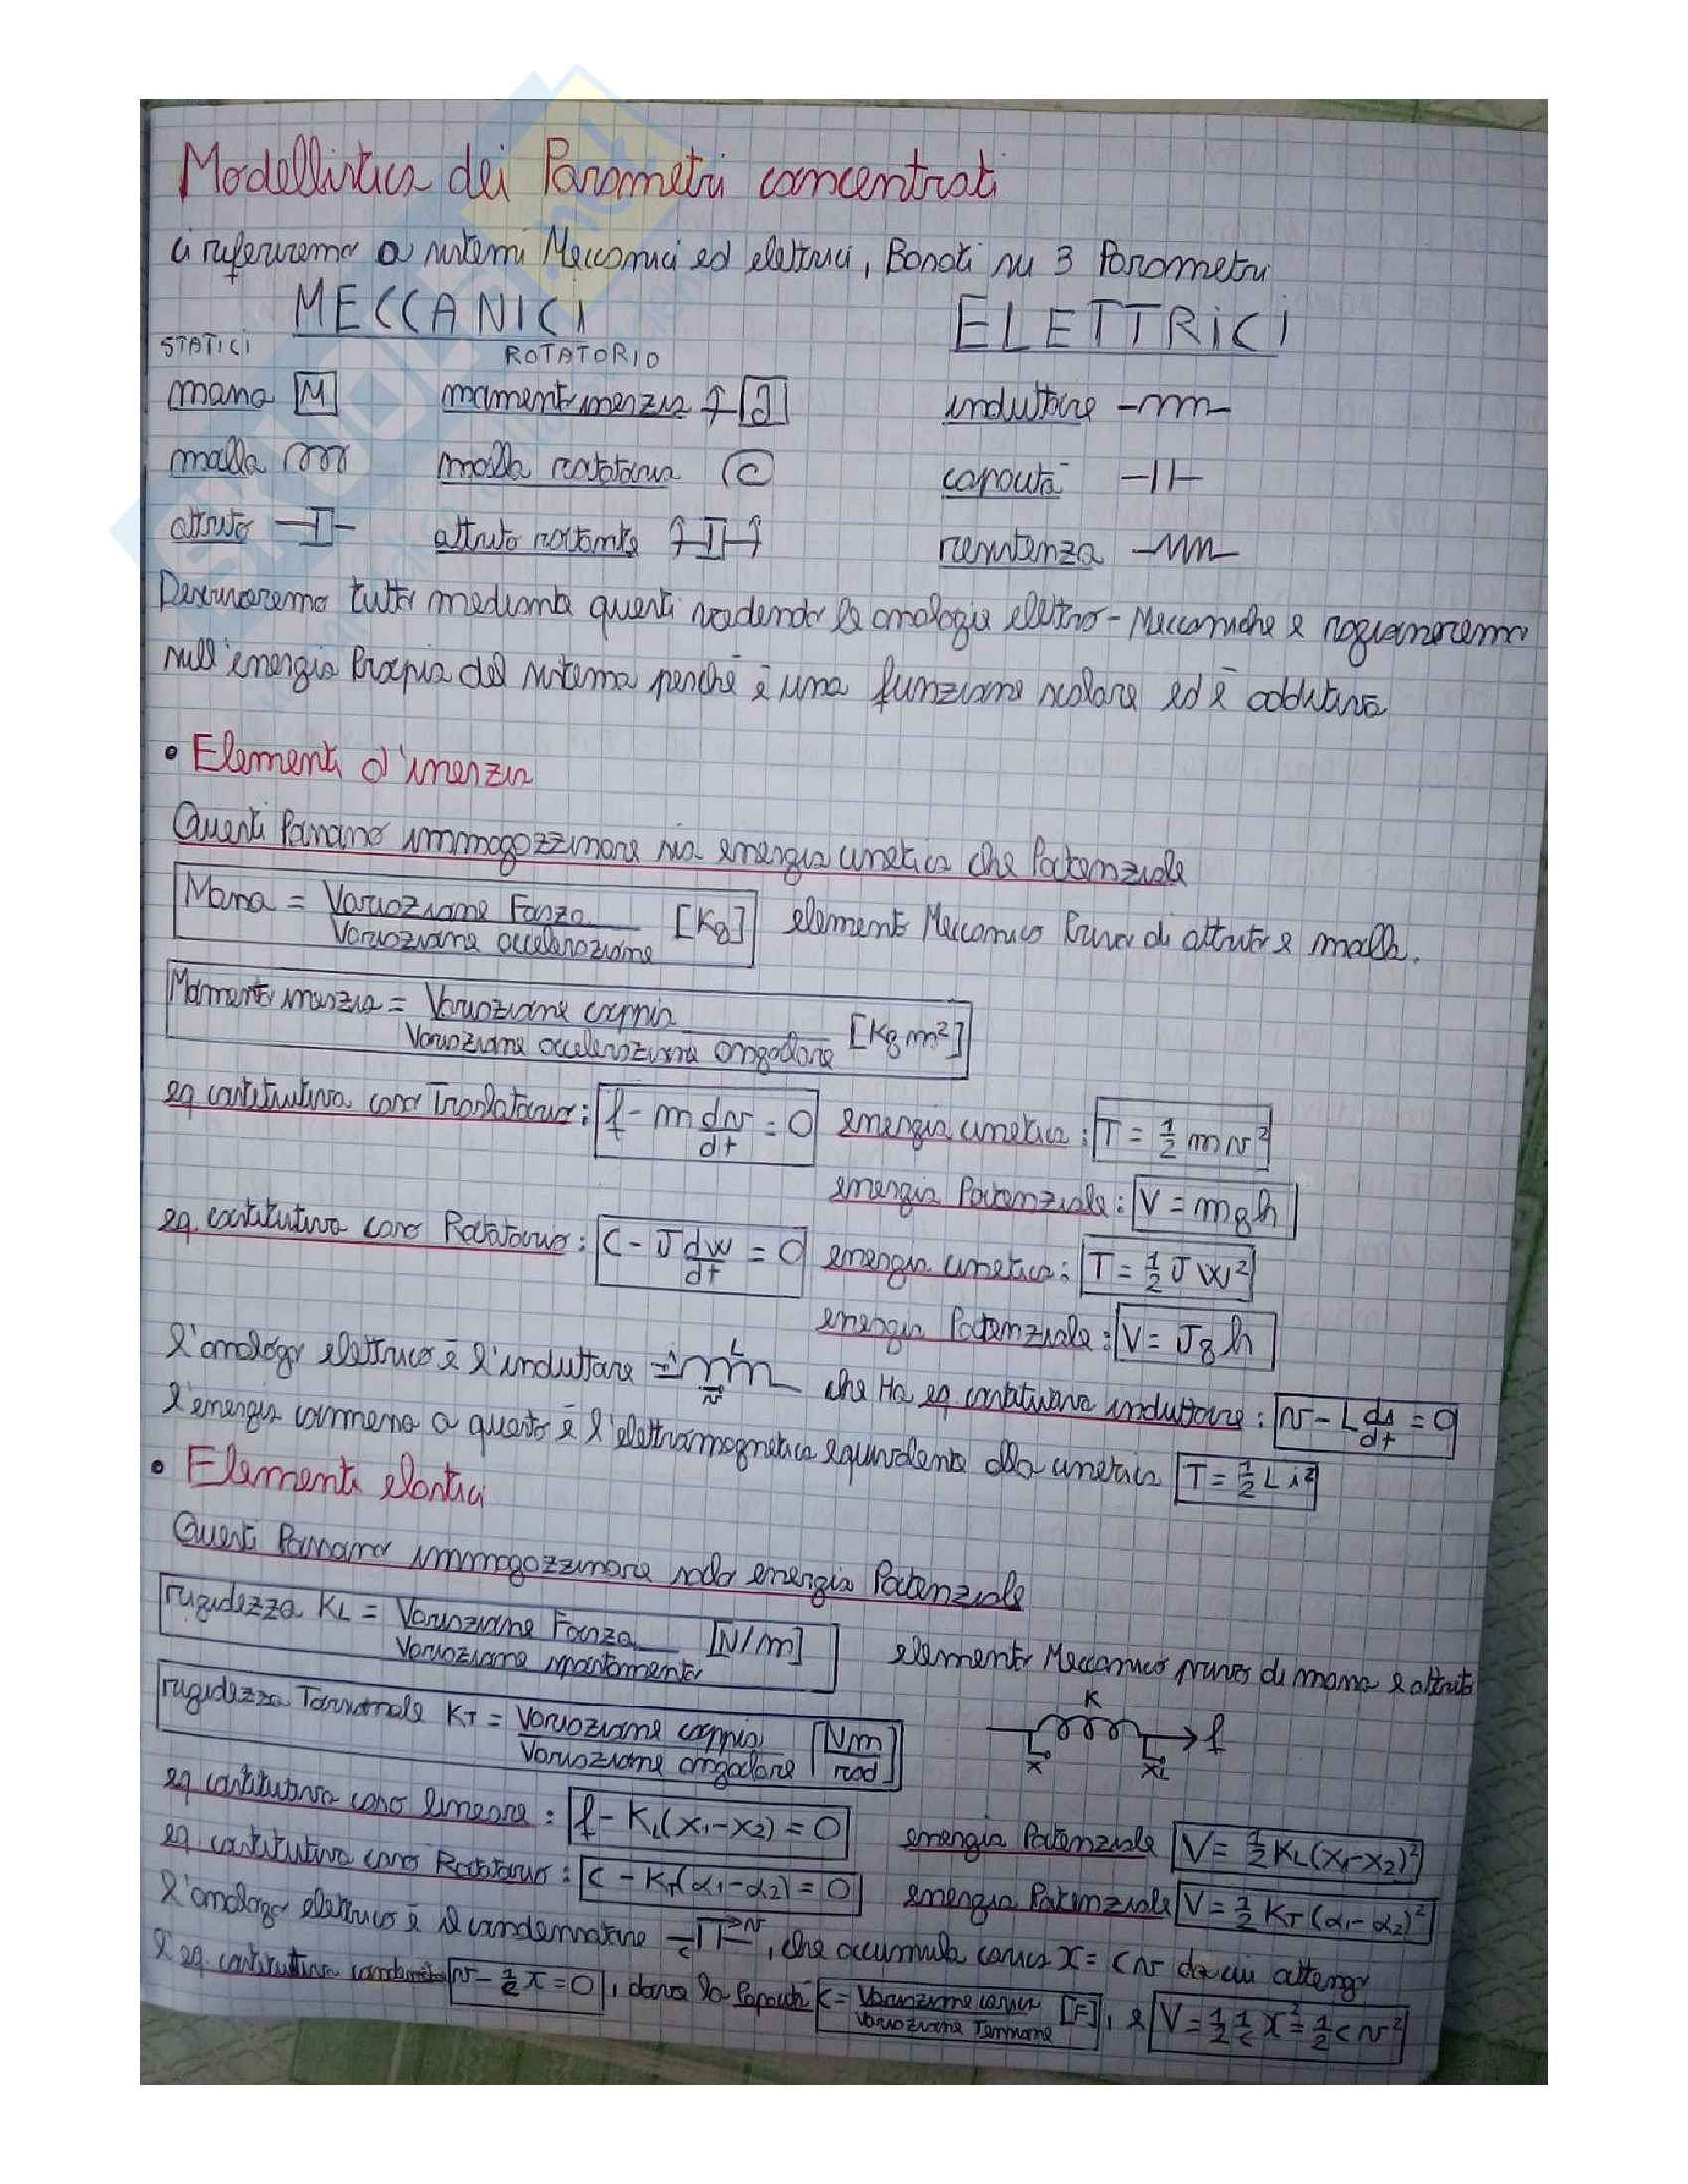 Modellistica dei Parametri concentrati
ci riferiremo a sistemi Meccanici ed elettrici, Basati su 3 Parametri
MECCANICI ELETTRICI
STATICI ROTATORIO
massa M momento inerzia J induttore
molla molla rotatoria C capacità
attrito attrito rotante resistenza
Descriveremo tutto mediante questi vedendo le analogie elettro-Meccaniche e ragioneremo
sull'energia Propria del sistema perché è una funzione scalare ed è additiva
• Elementi d'inerzia
Questi Possono immagazzinare sia energia cinetica che Potenziale
Massa = Variazione Forza / Variazione accelerazione [Kg] elemento Meccanico Privo di attrito e molla.
Momento inerzia = Variazione coppia / Variazione accelerazione angolare [Kg m²]
eq costitutiva caso Traslatorio: f - m dv/dt = 0 energia cinetica: T = 1/2 m v²
energia Potenziale: V = mgh
eq. costitutiva caso Rotatorio: C - J dw/dt = 0 energia cinetica: T = 1/2 J w²
energia Potenziale: V = Jgh
l'analogo elettrico è l'induttore i L v che Ha eq costitutiva induttore: v - L di/dt = 0
l'energia connessa a questo è l'elettromagnetica equivalente alla cinetica T = 1/2 L i²
• Elementi elastici
Questi Possano immagazzinare solo energia Potenziale
rigidezza KL = Variazione Forza / Variazione spostamento [N/m] elemento Meccanico privo di massa e attrito
rigidezza Torsionale KT = Variazione coppia / Variazione angolare [Nm/rad] K f
eq costitutiva caso lineare: f - KL(x1-x2) = 0 energia Potenziale V = 1/2 KL(x1-x2)²
eq. costitutiva caso Rotatorio: C - KT(α1-α2) = 0 energia Potenziale V = 1/2 KT(α1-α2)²
l'analogo elettrico è il condensatore c v, che accumula carica X = cv da cui ottengo
l'eq. costitutiva condensatore v - 1/c X = 0, dove la Capacità C = Variazione carica / Variazione Tensione [F], e V = 1/2 1/c X² = 1/2 c v²